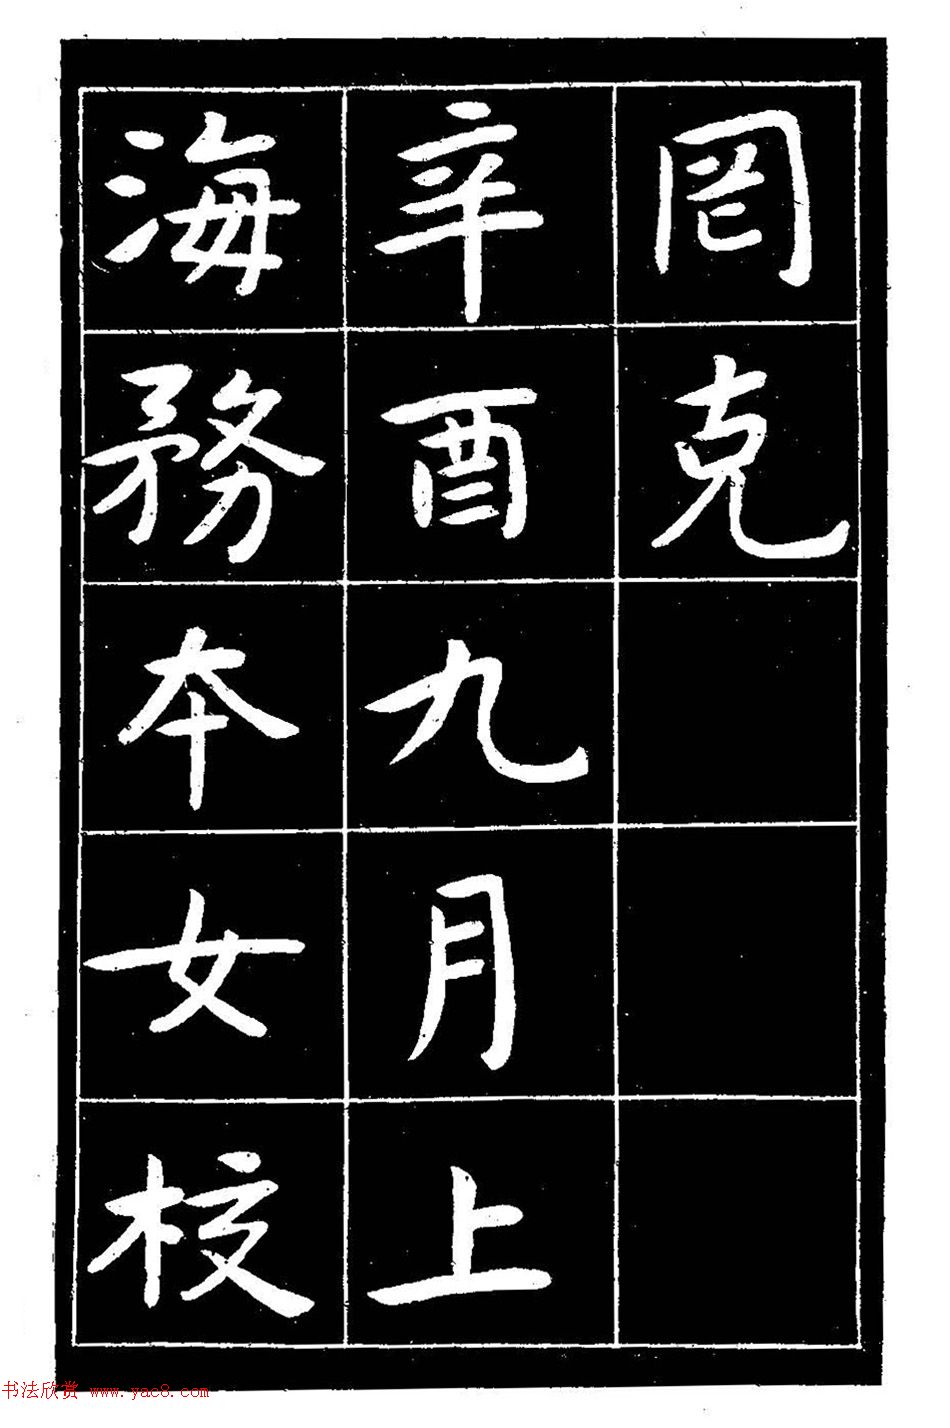 罔克
辛酉九月上
海務本女校
书法欣赏 www.yac8.com